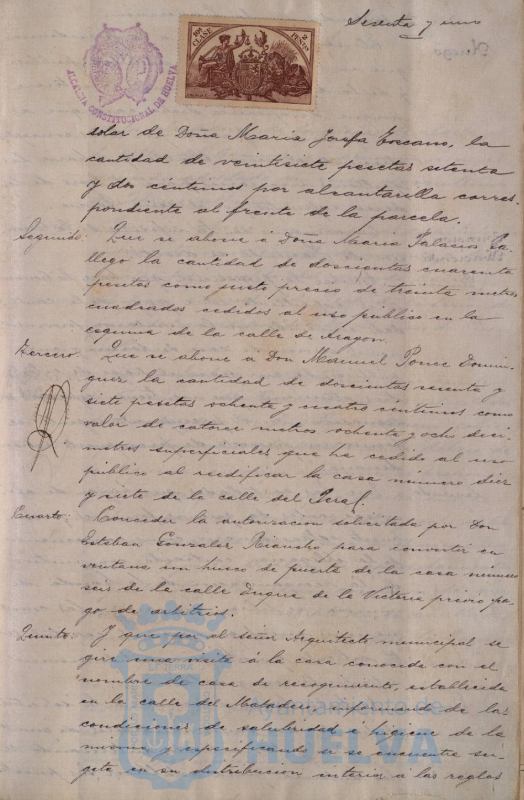 Sesenta y uno
10ª CLASE 2 PESETAS
ALCALDIA CONSTITUCIONAL DE HUELVA
solar de Doña Maria Josefa Toscano, la
cantidad de veintisiete pesetas setenta
y dos céntimos por alcantarilla corres-
pondiente al frente de la parcela.
Segundo: Que se abone á Doña Maria Palacios Ga-
llego la cantidad de doscientas cuarenta
pesetas como justo precio de treinta metros
cuadrados cedidos al uso público en la
esquina de la calle de Aragon.
Tercero: Que se abone á Don Manuel Ponce Domin-
guez la cantidad de doscientas sesenta y
siete pesetas ochenta y cuatro céntimos como
valor de catorce metros ochenta y ocho deci-
metros superficiales que ha cedido al uso
público al reedificar la casa número diez
y siete de la calle del Peral.
Cuarto: Conceder la autorizacion solicitada por Don
Esteban Gonzalez para convertir en
ventana un hueco de puerta de la casa número
seis de la calle Duque de la Victoria previo pa-
go de arbitrios.
Quinto: Y que por el señor Arquitecto municipal se
gire una visita á la casa conocida con el
nombre de casa de recogimiento, establecida
en la calle del Matadero, informando de las
condiciones de salubridad é higiene de la
misma y especificando si se encuentra su-
jeta en su distribucion interior a las reglas
Ayuntamiento de
HUELVA